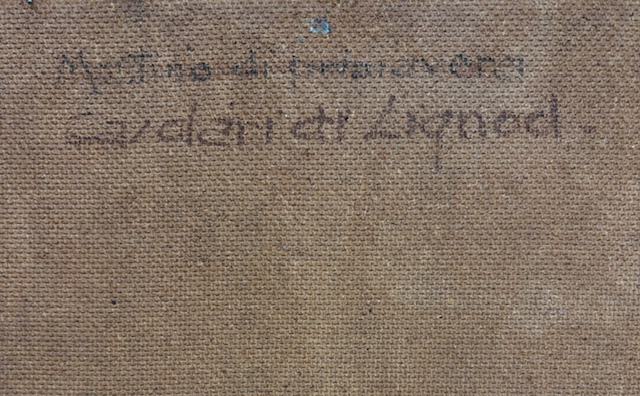 Mattino di primavera
di Lignod.